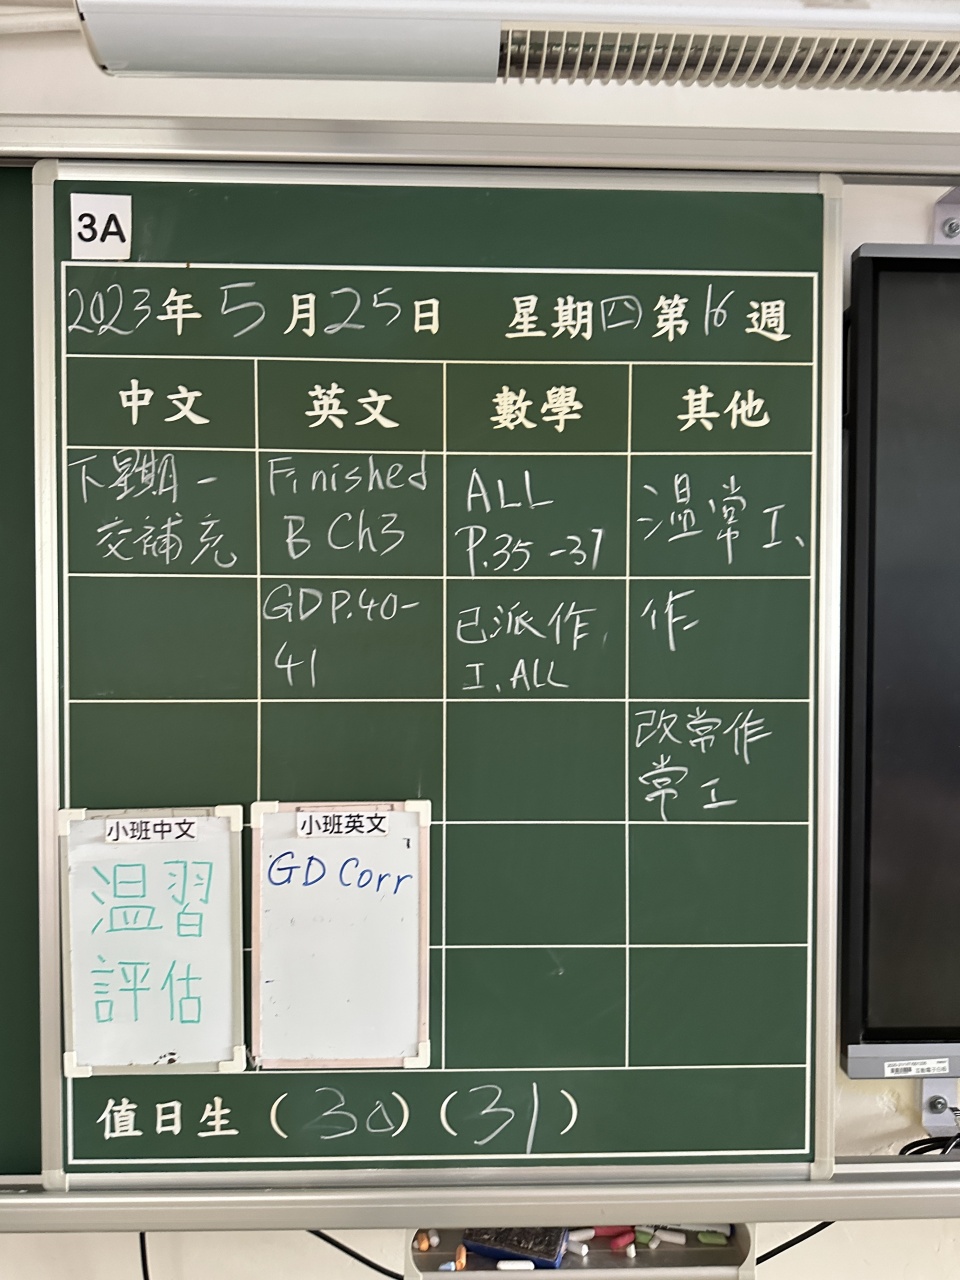 3A
2023年5月25日 星期四第16週
中文 英文 數學 其他
下星期一
交補充
Finished
B Ch3
ALL
P.35-37
溫常I、
GDP.40-
41
已派作,
I、ALL
作
改常作
常工
小班中文
溫習
評估
小班英文
GD Corr
值日生 (30) (31)